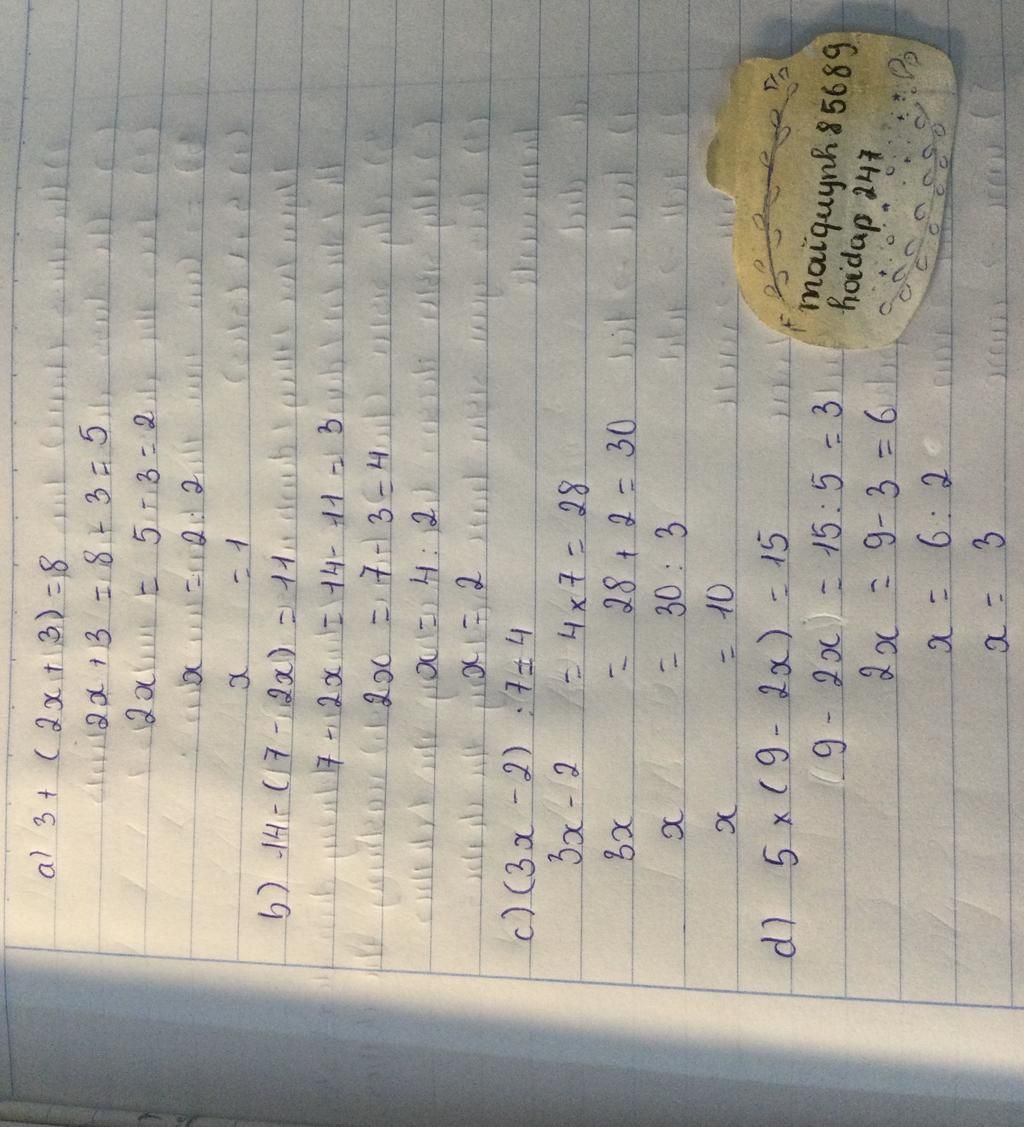 a) 3 + (2x + 3) = 8
2x + 3 = 8 - 3 = 5
2x = 5 - 3 = 2
x = 2 : 2
x = 1
b) 14 - (7 - 2x) = 11
7 - 2x = 14 - 11 = 3
2x = 7 - 3 = 4
x = 4 : 2
x = 2
c) (3x - 2) : 7 = 4
3x - 2 = 4 x 7 = 28
3x = 28 + 2 = 30
x = 30 : 3
x = 10
d) 5 x (9 - 2x) = 15
(9 - 2x) = 15 : 5 = 3
2x = 9 - 3 = 6
x = 6 : 2
x = 3
maiquynh85689
hoidap 247